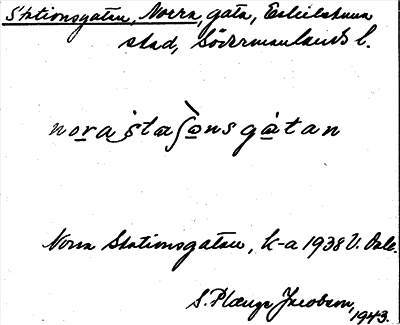 Stationsgatan, Norra, gata, Eskilstuna
stad, Södermanlands l.
nora staʃonsgàtan
Norra Stationsgatan, k-a 1938
S. Plænge Jacobson, 1943.